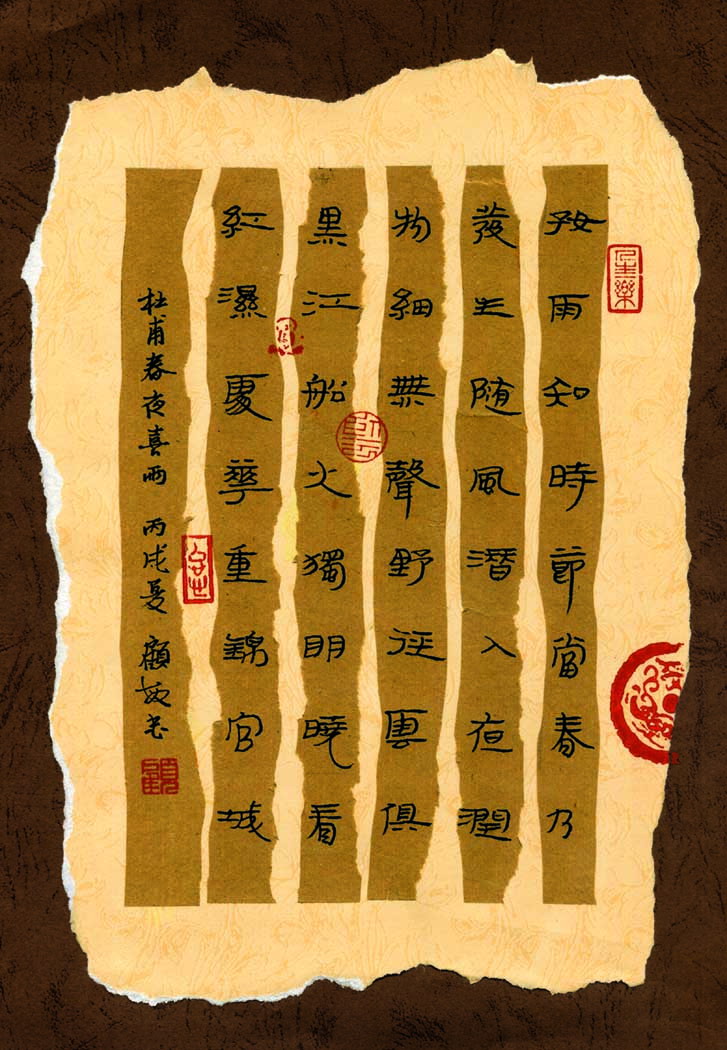 好雨知時節當春乃
發生随風潛入夜潤
物細無聲野徑雲俱
黑江船火獨明曉看
紅濕處華重錦官城
杜甫春夜喜雨 丙戌夏 顧